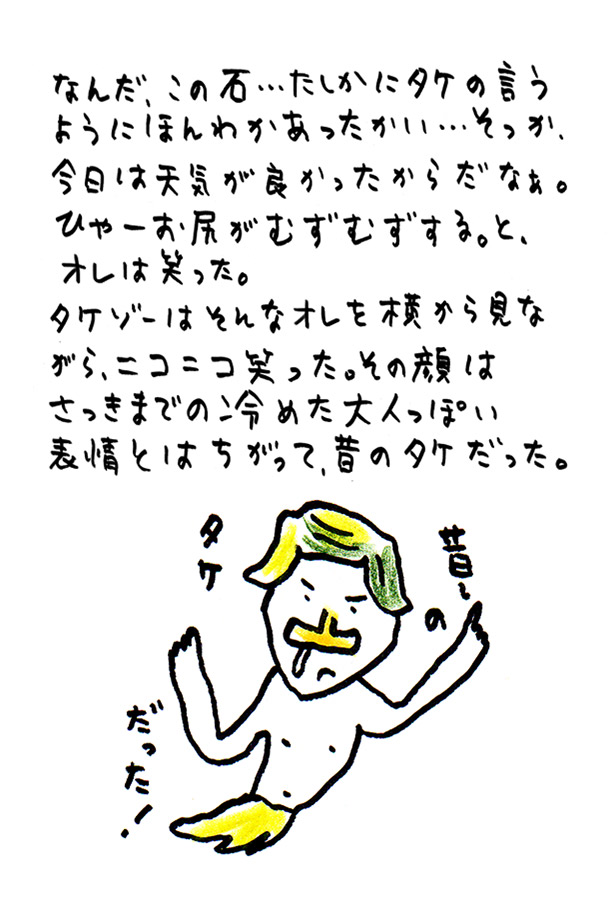 なんだ、この石…たしかにタケの言う
ようにほんわかあったかい…そっか、
今日は天気が良かったからだなぁ。
ひゃーお尻がむずむずする。と、
オレは笑った。
タケゾーはそんなオレを横から見な
がら、ニコニコ笑った。その顔は
さっきまでの冷めた大人っぽい
表情とはちがって、昔のタケだった。
昔〜
の
タケ
だった!